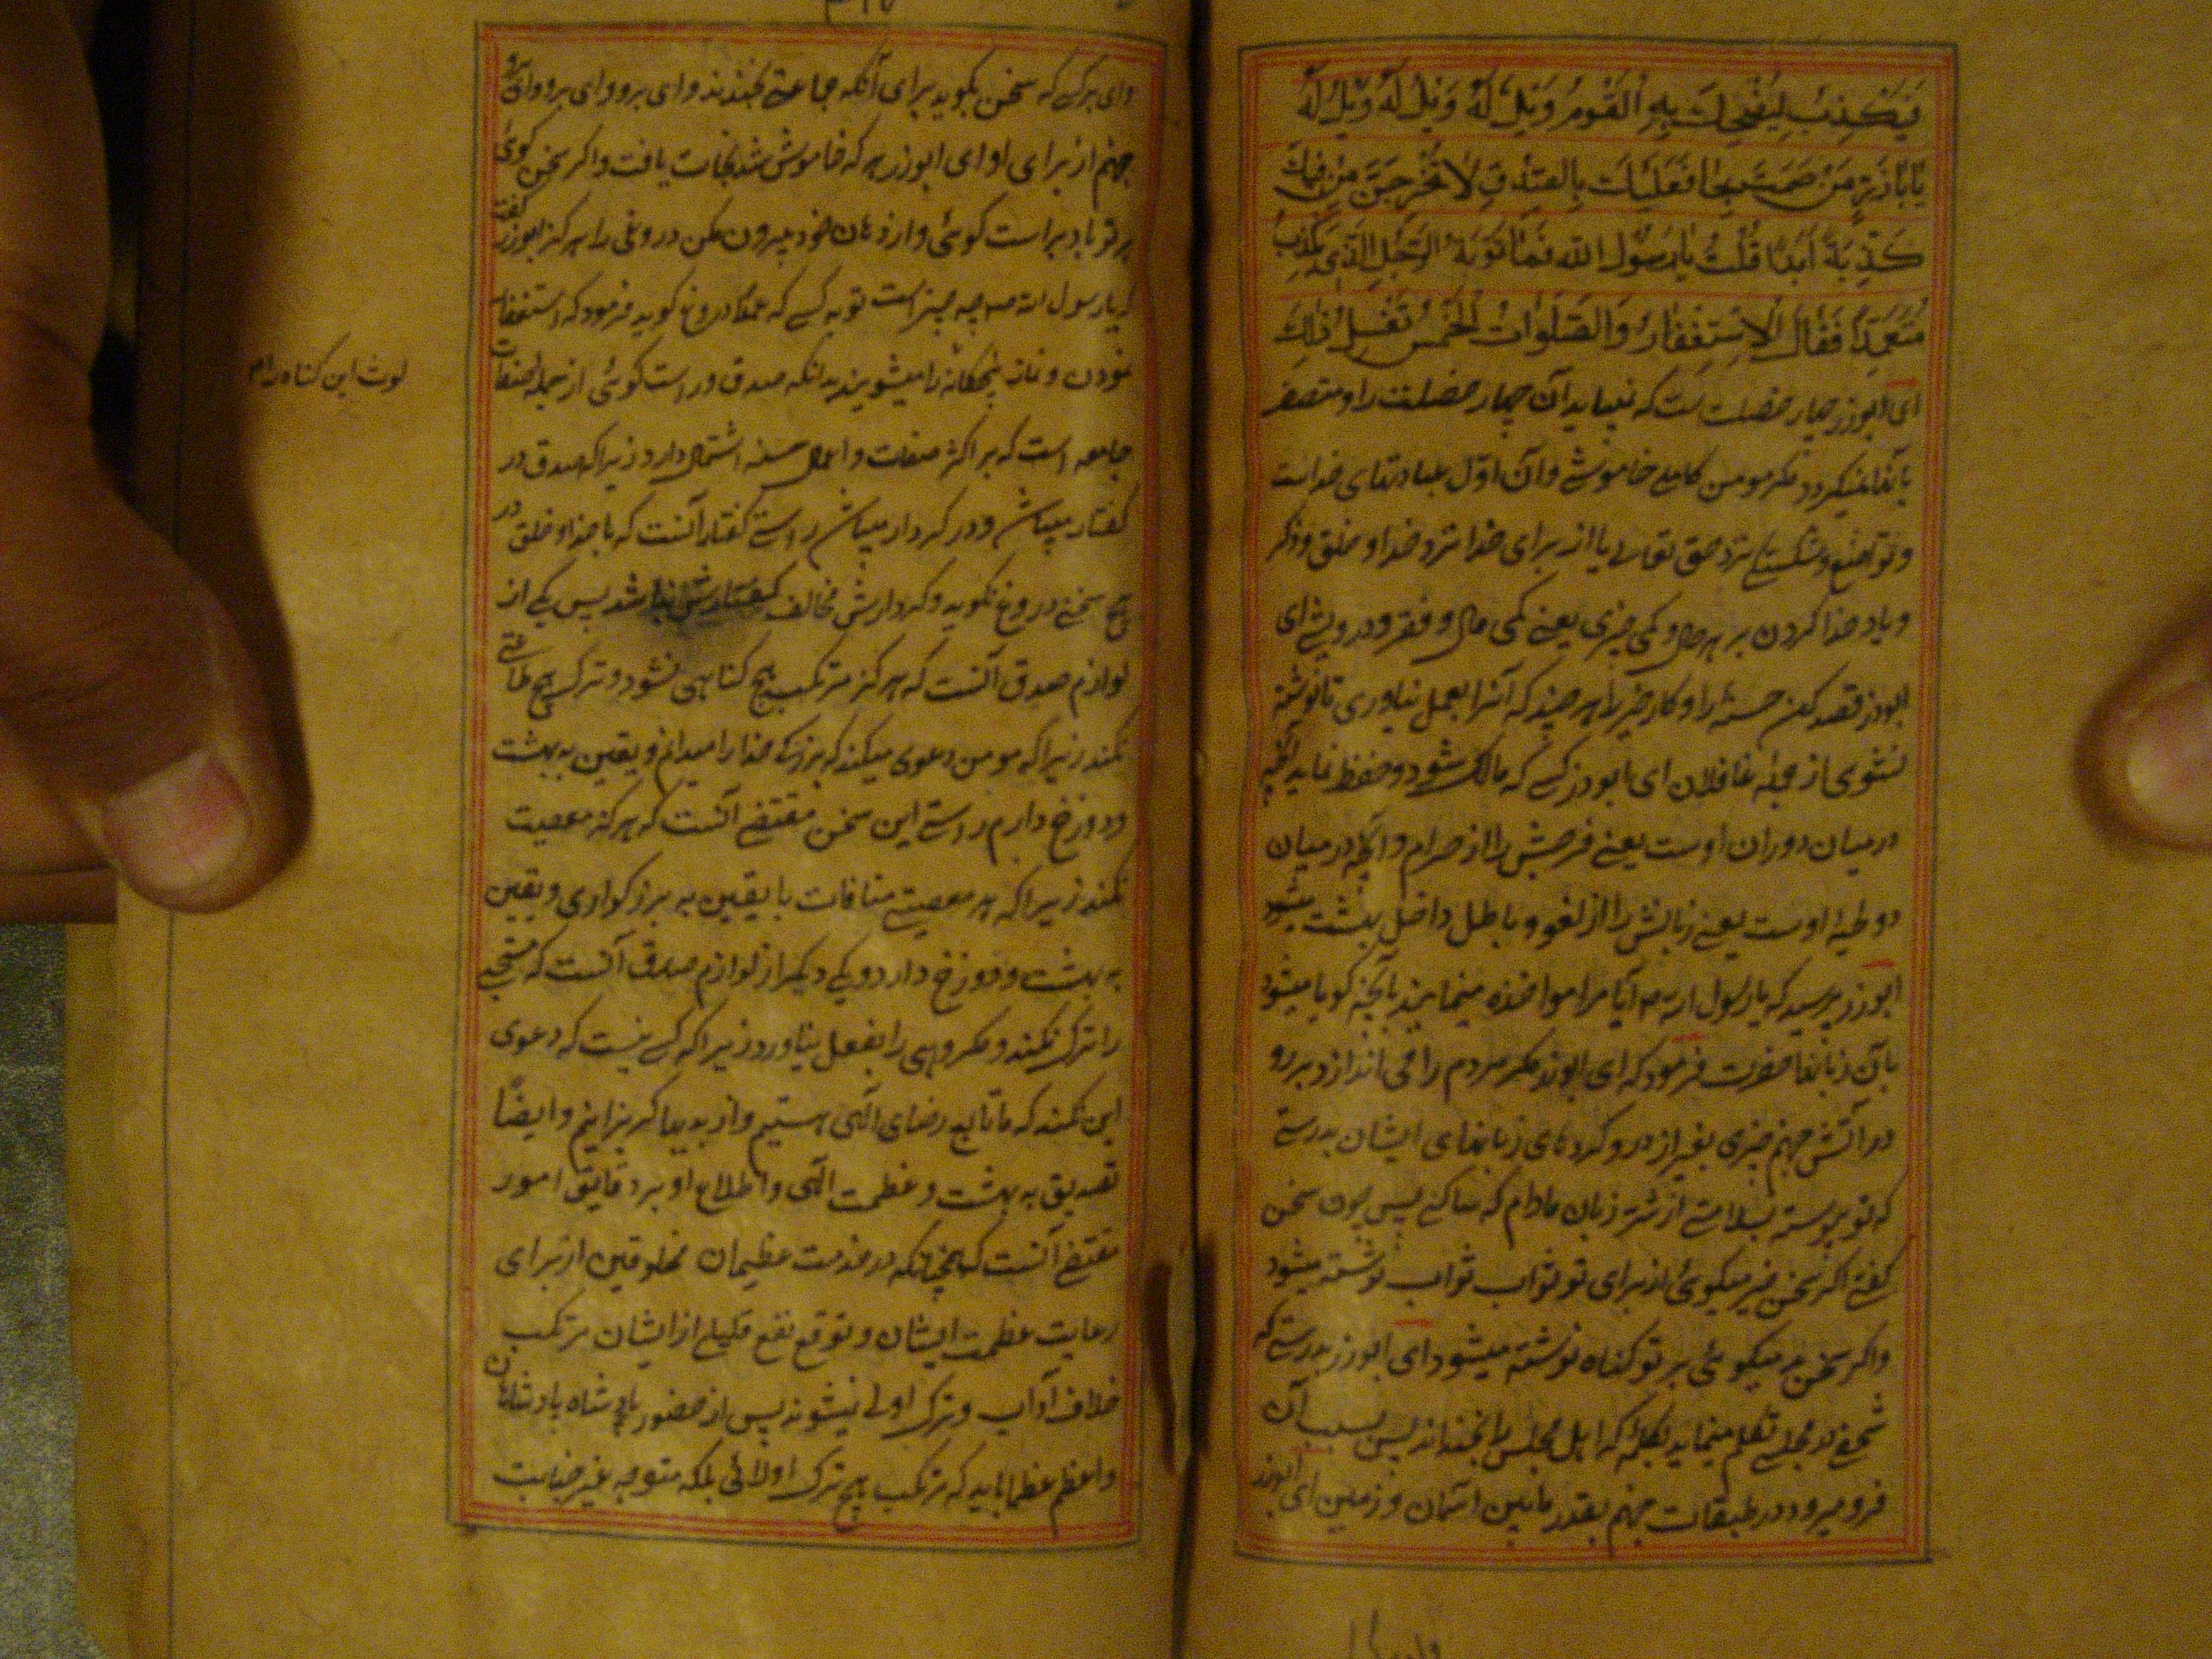 فَيَكْذِبُ لِيُضْحِكَ بِهِ الْقَوْمَ وَيْلٌ لَهُ وَيْلٌ لَهُ وَيْلٌ لَهُ
يَا بَاذَرٍّ مَنْ صَمَتَ نَجَا فَعَلَيْكَ بِالصِّدْقِ لَا تَخْرُجَنَّ مِنْ فِيكَ
كَذِبَةٌ اَبَدًا قُلْتُ يَا رَسُولَ اللّه فَمَا تَوْبَةُ الرَّجُلِ الَّذِي يَكْذِبُ
مُتَعَمِّدًا فَقَالَ الْاِسْتِغْفَارُ وَالصَّلَوَاتُ الْخَمْسُ تَغْسِلُ ذٰلِكَ
ای ابوذر چهار خصلت است که نمییابد آن چهار خصلت را و متصف
بآنها نمیکردد مکر مومن کاملی خاموشی و آن اوّل عبادتهای خداست
و تواضع و شکستکی نزد حق تعالی یا از برای خدا نزد خدا و خلق و ذکر
و یاد خدا کردن بر هر حال و کمی چیزی یعنی کمی مال و فقر و درویشی ای
ابوذر قصد کن حسنه را و کار خیر را هر چند که آنرا بعمل نیاوری تا نوشته
نشوی از جمله غافلان ای ابوذر کسی که مالک شود و حفظ نماید آنچه
در میان دو ران اوست یعنی فرجش را از حرام و آنچه در میان
دو لحیهٔ اوست یعنی زبانش را از لغو و باطل داخل بهشت میشود
ابوذر پرسید که یا رسول الله آیا مرا مواخذه مینمایند بآنچه کویا میشود
بآن زبانها حضرت فرمود که ای ابوذر مکر مردم را می اندازد بر رو
در آتش جهنم چیزی بغیر از درو کردهای زبانهای ایشان بدرستی
که تو پیوسته بسلامتی از شرّ زبان مادام که ساکتی پس چون سخن
کفتی اکر سخن خیر میکوئی از برای تو ثواب نوشته میشود
و اکر سخن بد میکوئی بر تو کناه نوشته میشود ای ابوذر بدرستی که
شخصی در مجلسی تکلم مینماید بکلمهٔ که اهل مجلس را بخنداند پس بسبب آن
فرو میرود در طبقات جهنم بقدر مابین آسمان و زمین ای ابوذر
وای بر کسی که سخن بکوید برای آنکه جماعتی بخندند وای بر او وای بر او وای بر او
جهنم از برای او ای ابوذر هر که خاموش شد نجات یافت و اکر سخن کوئی
بر تو باد براست کوئی و از دهان خود بیرون مکن دروغی را هرکز ابوذر کفت
که یا رسول الله چه چیز است توبه کسی که عمدا دروغ کوید فرمود که استغفار
نمودن و نماز پنجکانه را میشویند بدانکه صدق و راست کوئی از جمله صفات
لوث این کناه را هم
جامعه است که بر اکثر صفات و اعمال حسنه اشتمال دارد زیرا که صدق در
کفتار میباشد و در کردار میباشد راستی کفتار آنست که با خدا و خلق در
هیچ سخنی دروغ نکوید و کردارش مخالف کفتارش نباشد پس یکی از
لوازم صدق آنست که هرکز مرتکب هیچ کناهی نشود و ترک هیچ طاعتی
نکند زیرا که مومن دعوی میکند که بزرکی خدا را میدانم و یقین به بهشت
و دوزخ دارم راستی این سخن مقتضی آنست که هرکز معصیت
نکند زیرا که هر معصیتی منافات با یقین به بزرکواری و یقین
به بهشت و دوزخ دارد و یکی دیکر از لوازم صدق آنست که مستحبی
را ترک نکند و مکروهی را بفعل نیاورد زیرا که کسی نیست که دعوی
این نکند که ما تابع رضای الٓهی هستیم و از بدیها کریزانیم و ایضًا
تصدیق به بهشت و عظمت الٓهی و اطلاع او بر دقایق امور
مقتضی آنست که همچنانکه در خدمت عظیمان مخلوقین از برای
رعایت عظمت ایشان و توقع نفع قلیلی از ایشان مرتکب
خلاف آداب و ترک اولی نیشوند پس از حضور پادشاه پادشاهان
و اعظم عظما باید که مرتکب هیچ ترک اولائی بلکه متوجه بغیر جنابت